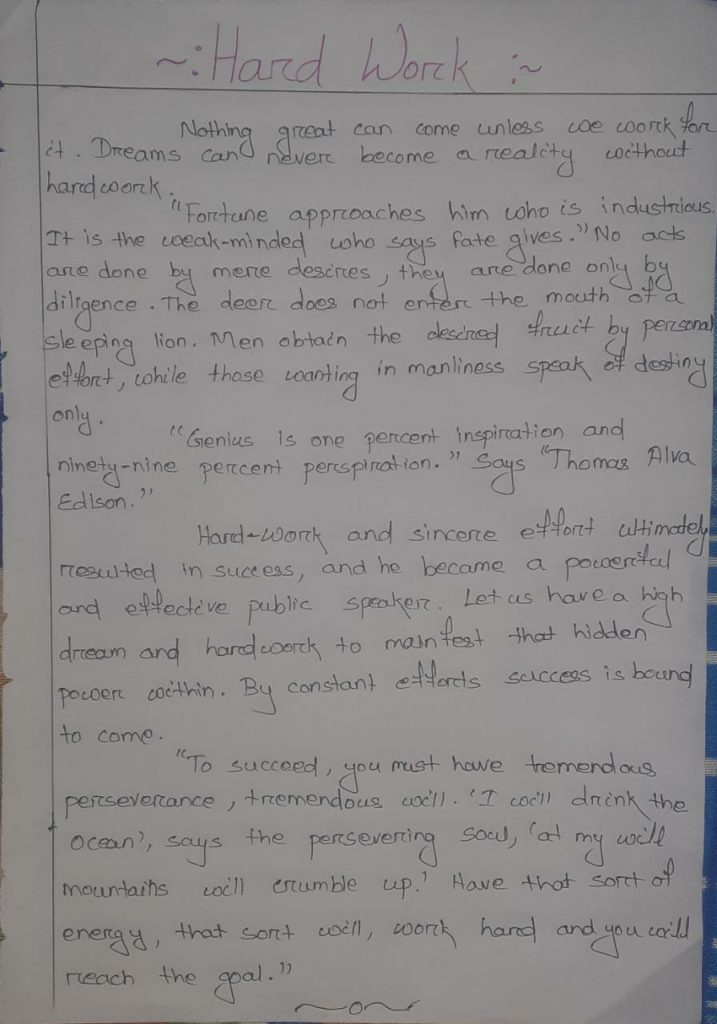 ~:Hard Work:~
Nothing great can come unless we work for
it. Dreams can never become a reality without
hardwork.
"Fortune approaches him who is industrious.
It is the weak-minded who says fate gives." No acts
are done by mere desires, they are done only by
diligence. The deer does not enter the mouth of a
sleeping lion. Men obtain the desired fruit by personal
effort, while those wanting in manliness speak of destiny
only.
"Genius is one percent inspiration and
ninety-nine percent perspiration." Says "Thomas Alva
Edison."
Hard-Work and sincere effort ultimately
resulted in success, and he became a powerful
and effective public speaker. Let us have a high
dream and hardwork to mainfest that hidden
power within. By constant efforts success is bound
to come.
"To succeed, you must have tremendous
perseverance, tremendous will. 'I will drink the
ocean', says the persevering soul, 'at my will
mountains will crumble up.' Have that sort of
energy, that sort will, work hard and you will
reach the goal."